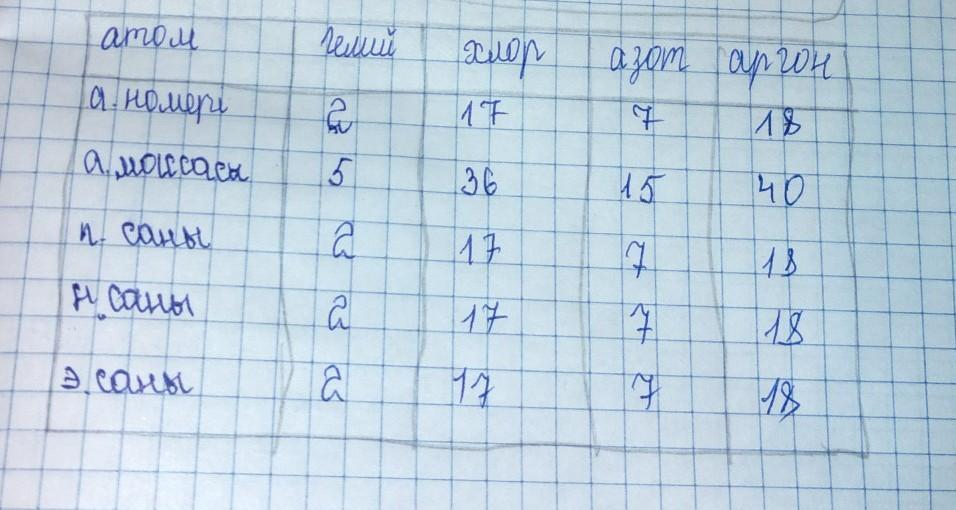 атом гелий хлор азот аргон
а.номері 2 17 7 18
а.массасы 5 36 15 40
п. саны 2 17 7 18
н.саны 2 17 7 18
э.саны 2 17 7 18